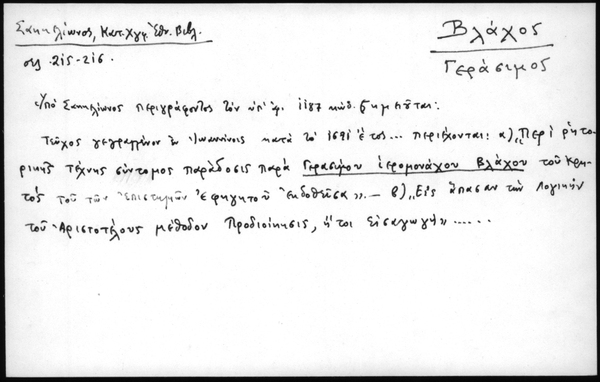 Σακκελίωνος, Κατ. Χγφ. Ἐθν. Βιβλ.
σελ. 215-216.
Βλάχος
Γεράσιμος
Ὑπό Σακκελίωνος περιγράφοντος τόν ὑπ' ἀρ. 1187 κώδ. σημειοῦται:
Τεῦχος γεγραμμένον ἐν Ἰωαννίνοις κατά τό 1691 ἔτος... περιέχονται: α) „Περί ῥητο-
ρικῆς τέχνης σύντομος παράδοσις παρά Γερασίμου ἱερομονάχου Βλάχου τοῦ Κρη-
τός τοῦ τῶν ἐπιστημῶν ἐφηγητοῦ ἐκδοθεῖσα». — β) „Εἰς ἅπασαν τήν λογικήν
τοῦ Ἀριστοτέλους μέθοδον Προδιοίκησις, ἤτοι Εἰσαγωγή» ......